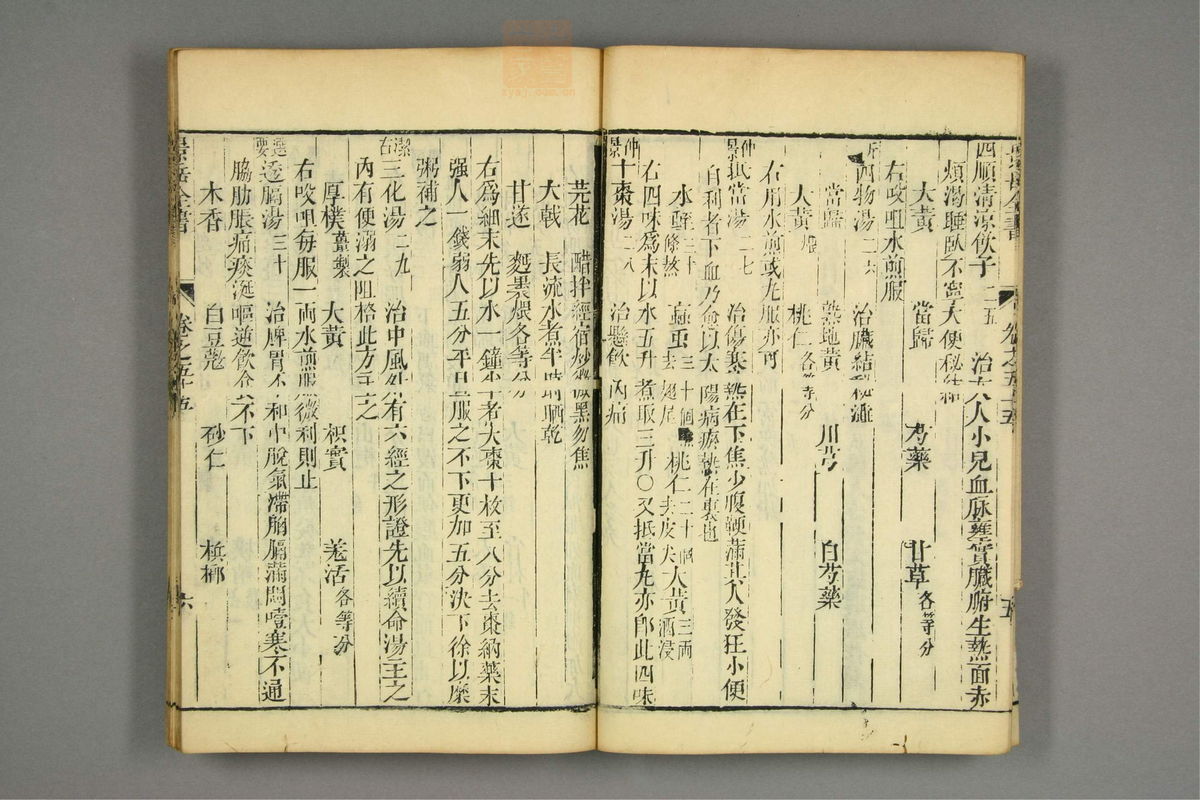 四順清涼飲子二五 治大人小兒血脉壅實臟腑生熱面赤
煩渴睡臥不寧大便秘結
大黃 當歸 芍藥 甘草各等分
右㕮咀水煎服
四物湯二六 治臟結秘澁
當歸 熟地黃 川芎 白芍藥
大黃煨 桃仁各等分
右用水煎或丸服亦可
仲景抵當湯二七 治傷寒熱在下焦少腹鞕滿其人發狂小便
自利者下血乃愈以太陽病瘀熱在裏也
水蛭三十條熬 蝱蟲三十個去翅尾 桃仁二十個去皮尖 大黃三兩酒浸
右四味爲末以水五升煮取三升○又抵當丸亦卽此四味
仲景十棗湯二八 治懸飲內痛
芫花醋拌經宿炒微黑勿焦
大戟長流水煮半時晒乾
甘遂麫裹煨各等分
右爲細末先以水一鐘半者大棗十枚至八分去棗納藥末
强人一錢弱人五分平旦服之不下更加五分決下徐以糜
粥補之
潔古三化湯二九 治中風外有六經之形證先以續命湯主之
內有便溺之阻格此方主之
厚樸薑製 大黃 枳實 羗活各等分
右㕮咀每服一兩水煎服微利則止
選要透膈湯三十 治脾胃不和中脘氣滯胸膈滿悶噎寒不通
脇肋脹痛痰涎嘔逆飲食不下
木香 白豆蔻 砂仁 檳榔
景岳全書 卷之五十五 六